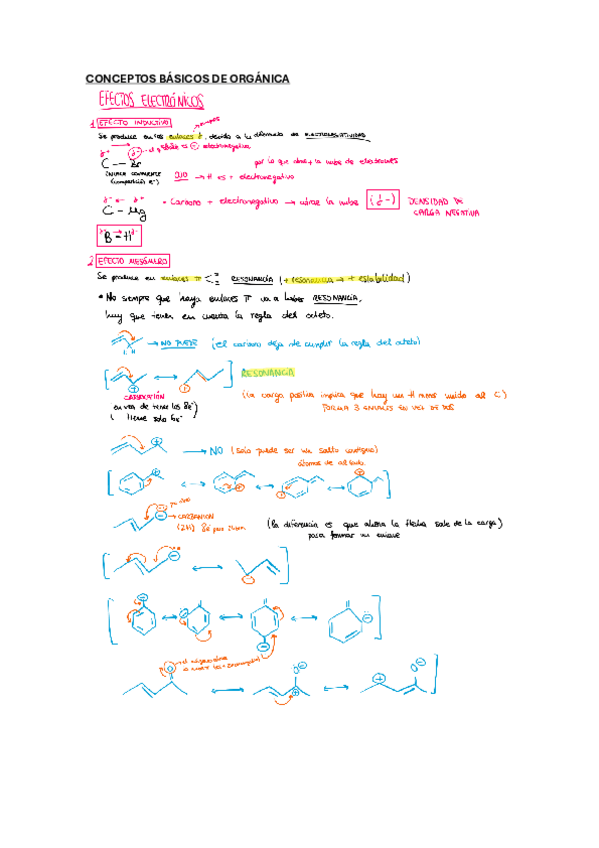 CONCEPTOS BÁSICOS DE ORGÁNICA
EFECTOS ELECTRÓNICOS
1 EFECTO INDUCTIVO
Se produce en los enlaces debido a la diferencia de ELECTRONEGATIVIDAD
electronegativo
C — Br
por lo que atrae + la nube de electrones
ENLACE COVALENTE
(compartición e⁻)
→ es + electronegativo
C - Mg
• Carbono + electronegativo → atrae la nube (δ-) DENSIDAD DE
CARGA NEGATIVA
B - H
2 EFECTO MESÓMERO
Se produce en enlaces π RESONANCIA (+ resonancia → + estabilidad)
• No siempre que haya enlaces π va a haber RESONANCIA,
hay que tener en cuenta la regla del octeto.
→ NO PUEDE (el carbono deja de cumplir la regla del octeto)
RESONANCIA
CARBOCATIÓN
en vez de tener los 8e⁻
tiene solo 6e⁻
(la carga positiva implica que hay un H menos unido al C)
FORMA 3 ENLACES EN VEZ DE DOS
→ NO (solo puede ser un salto contiguo)
→ CARBANIÓN
(la diferencia es que ahora la flecha sale de la carga)
para formar un enlace